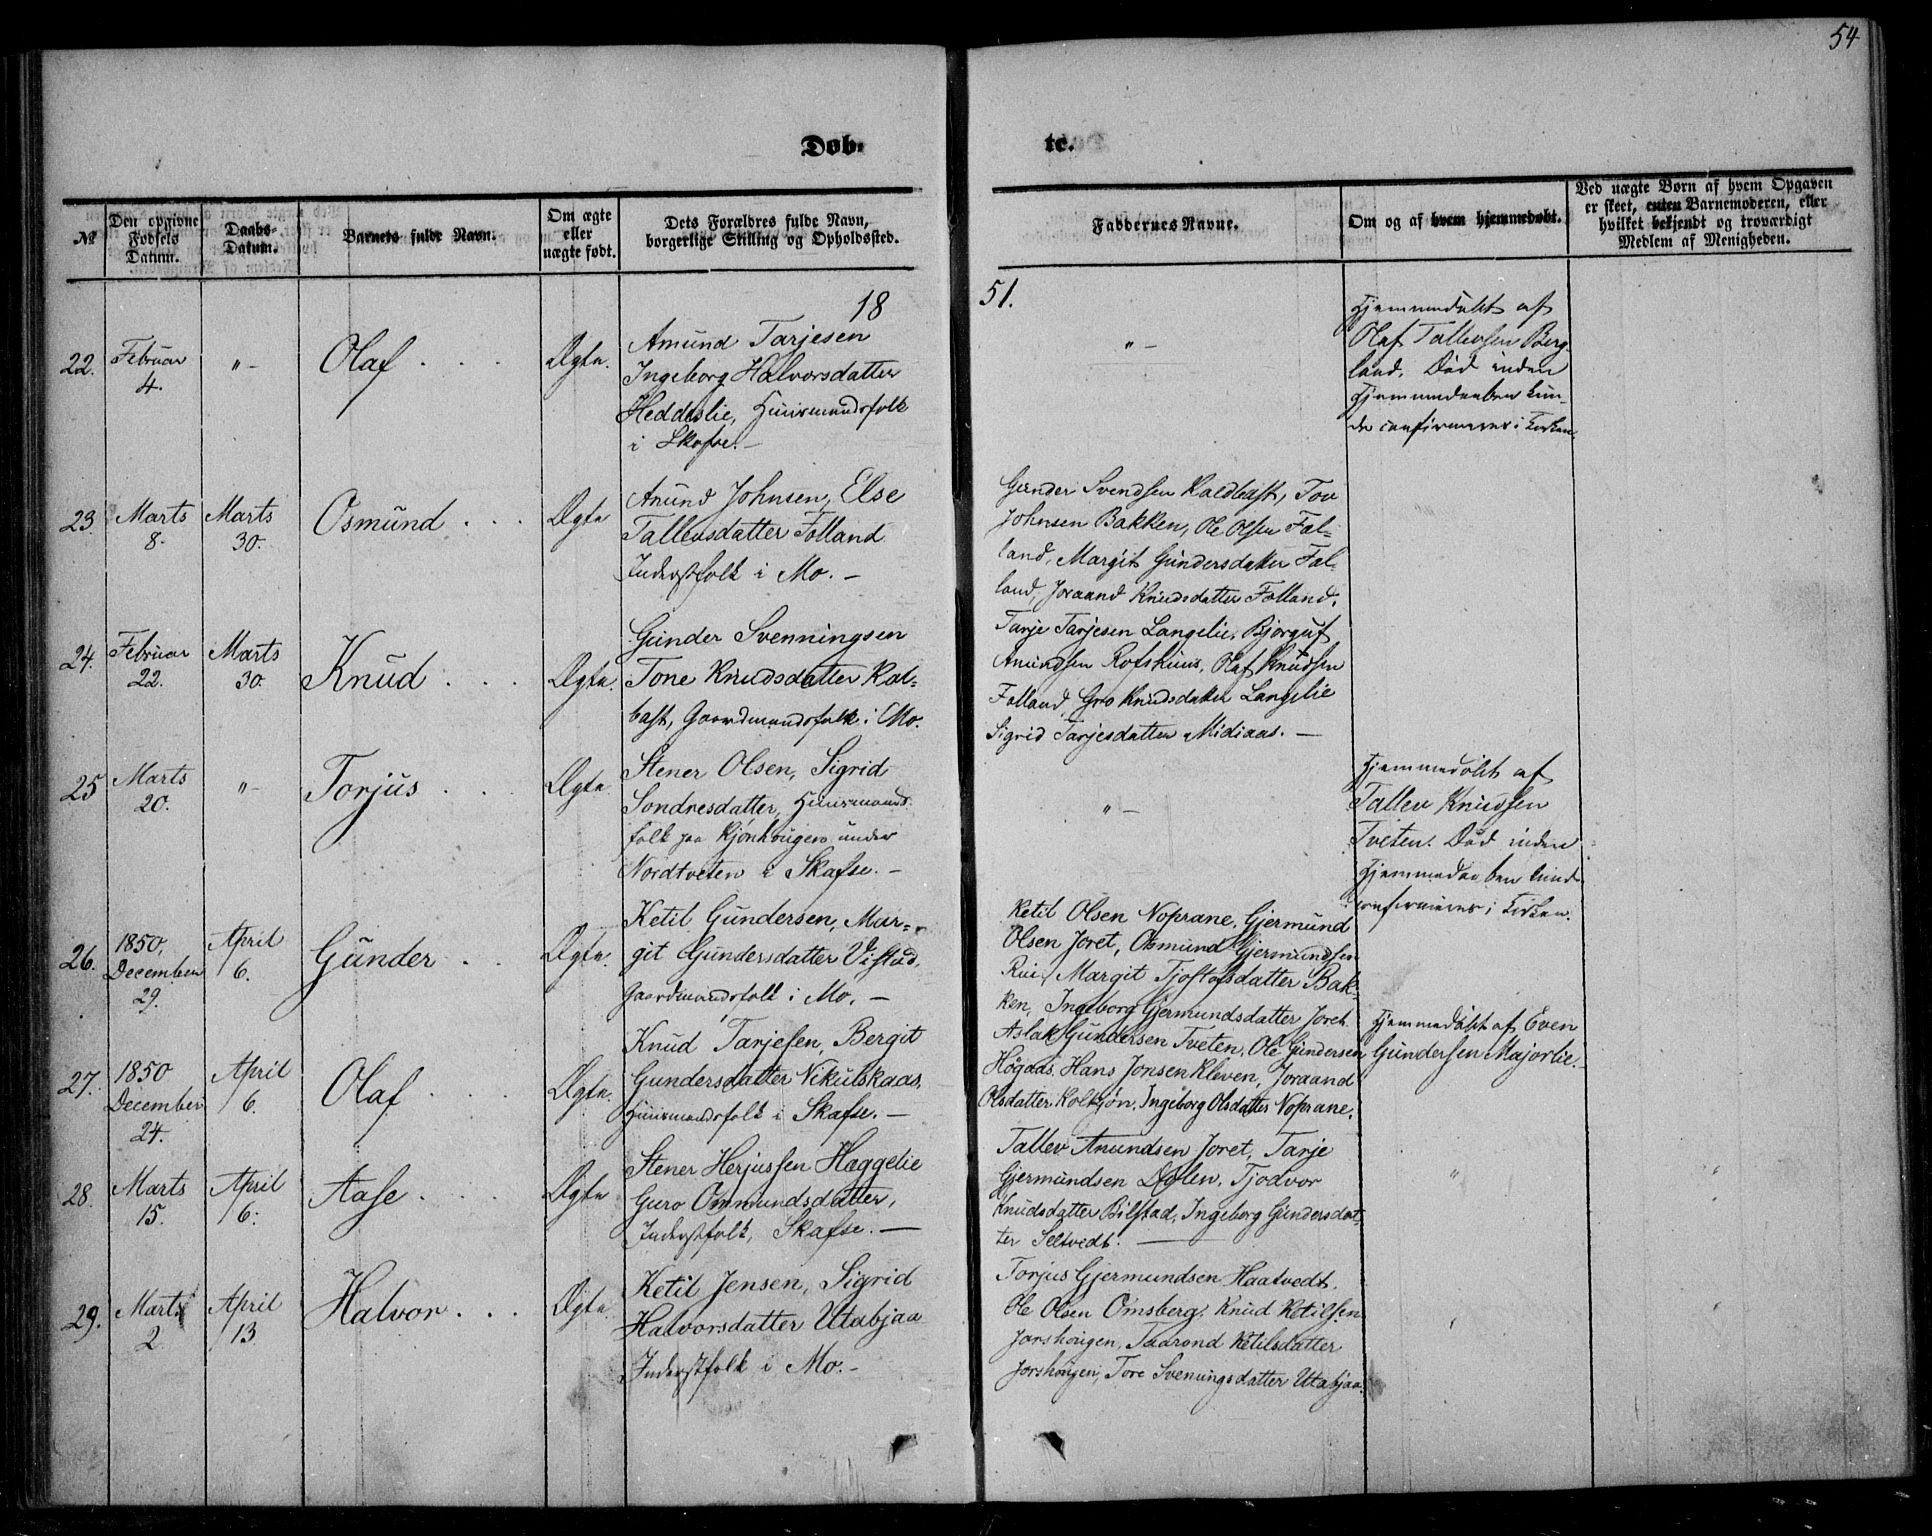 54
Døb-
te.
№
Den opgivne
Fødsels
Datum.
Daabs-
Datum.
Barnets fulde Navn.
Om ægte
eller
uægte født.
Dets Forældres fulde Navn,
borgerlige Stilling og Opholdssted.
Faddernes Navne.
Om og af hvem hjemmedøbt.
Ved uægte Børn af hvem Opgaven
er skeet, enten Barnemoderen, eller
hvilket bekjendt og troværdigt
Medlem af Menigheden.
18
51.
22.
Februar
4.
"-
Olaf
Ægte.
Amund Tarjesen
Ingeborg Halvorsdatter
Heddeslie, Huusmandsfolk
i Skafse.-
"-
Hjemmedøbt af
Olaf Tallevsen Berg
land. Død inden
Hjemmedaaben kun-
de confirmeres i Kirken.
23.
Marts
8.
Marts
30.
Osmund
Ægte
Anund Johnsen, Else
Tallevsdatter Folland
Inderstfolk i Mo. -
Gunder Svendsen Kaldbast, Tov
Johnsen Bakken, Ole Olsen Fol-
land, Margit Gundersdatter Fol-
land, Joraand Knudsdatter Folland.
24.
Februar
22.
Marts
30.
Knud
Ægte.
Gunder Svenningsen
Tone Knudsdatter Kal-
bast, Gaardmandsfolk i Mo.
Tarje Tarjesen Langelie, Bjorguf
Amundsen Rofshuus, Olaf Knudsen
Folland, Gro Knudsdatter Langelie
Sigrid Tarjesdatter Midiaas. -
25
Marts
20.
"-
Torjus
Ægte.
Stener Olsen, Sigrid
Sondresdatter, Huusmands-
folk paa Kjønhougen under
Nordtveten i Skafse. -
"-
Hjemmedøbt af
Tallev Knudsen
Tveten. Død inden
Hjemmedaaben kunde
confirmeres i Kirken.
26.
1850,
December
29.
April
6.
Gunder
Ægte.
Ketil Gundersen, Mar-
git Gundersdatter Vistad,
Gaardmandsfolk i Mo. -
Ketil Olsen Noprane, Gjermund
Olsen Joret, Osmund Gjermundsen
Rui, Margit Tjostofsdatter Bak-
ken, Ingeborg Gjermundsdatter Joret.
27.
1850
December
24.
April
6.
Olaf
Ægte.
Knud Tarjesen, Bergit
Gundersdatter Nikulskaas,
Huusmandsfolk i Skafse. -
Aslak Gundersen Tveten, Ole Gundersen
Høgaas, Hans Jonsen Kleven, Joraand
Olsdatter Koltjøn, Ingeborg Olsdatter Noprane.
Hjemmedøbt af Even
Gundersen Majorlie.-
28.
Marts
15.
April
6.
Aase
Ægte
Stener Herjussen Hæggelie
Guro Ommundsdatter,
Inderstfolk, Skafse. -
Tallev Anundsen Joret, Tarje
Gjermundsen Dalen, Tjodvor
Knudsdatter Bilstad, Ingeborg Gundersdat-
ter Seltvedt. -
"
"
29.
Marts
2
April
13
Halvor
Ægte.
Ketil Jensen, Sigrid
Halvorsdatter Utabjaa
Inderstfolk i Mo.-
Torjus Gjermundsen Haatvedt,
Ole Olsen Omsberg, Knud Ketilsen
Jorshougen, Taarond Ketilsdatter
Jorshougen, Tore Svenungsdatter Utabjaa.